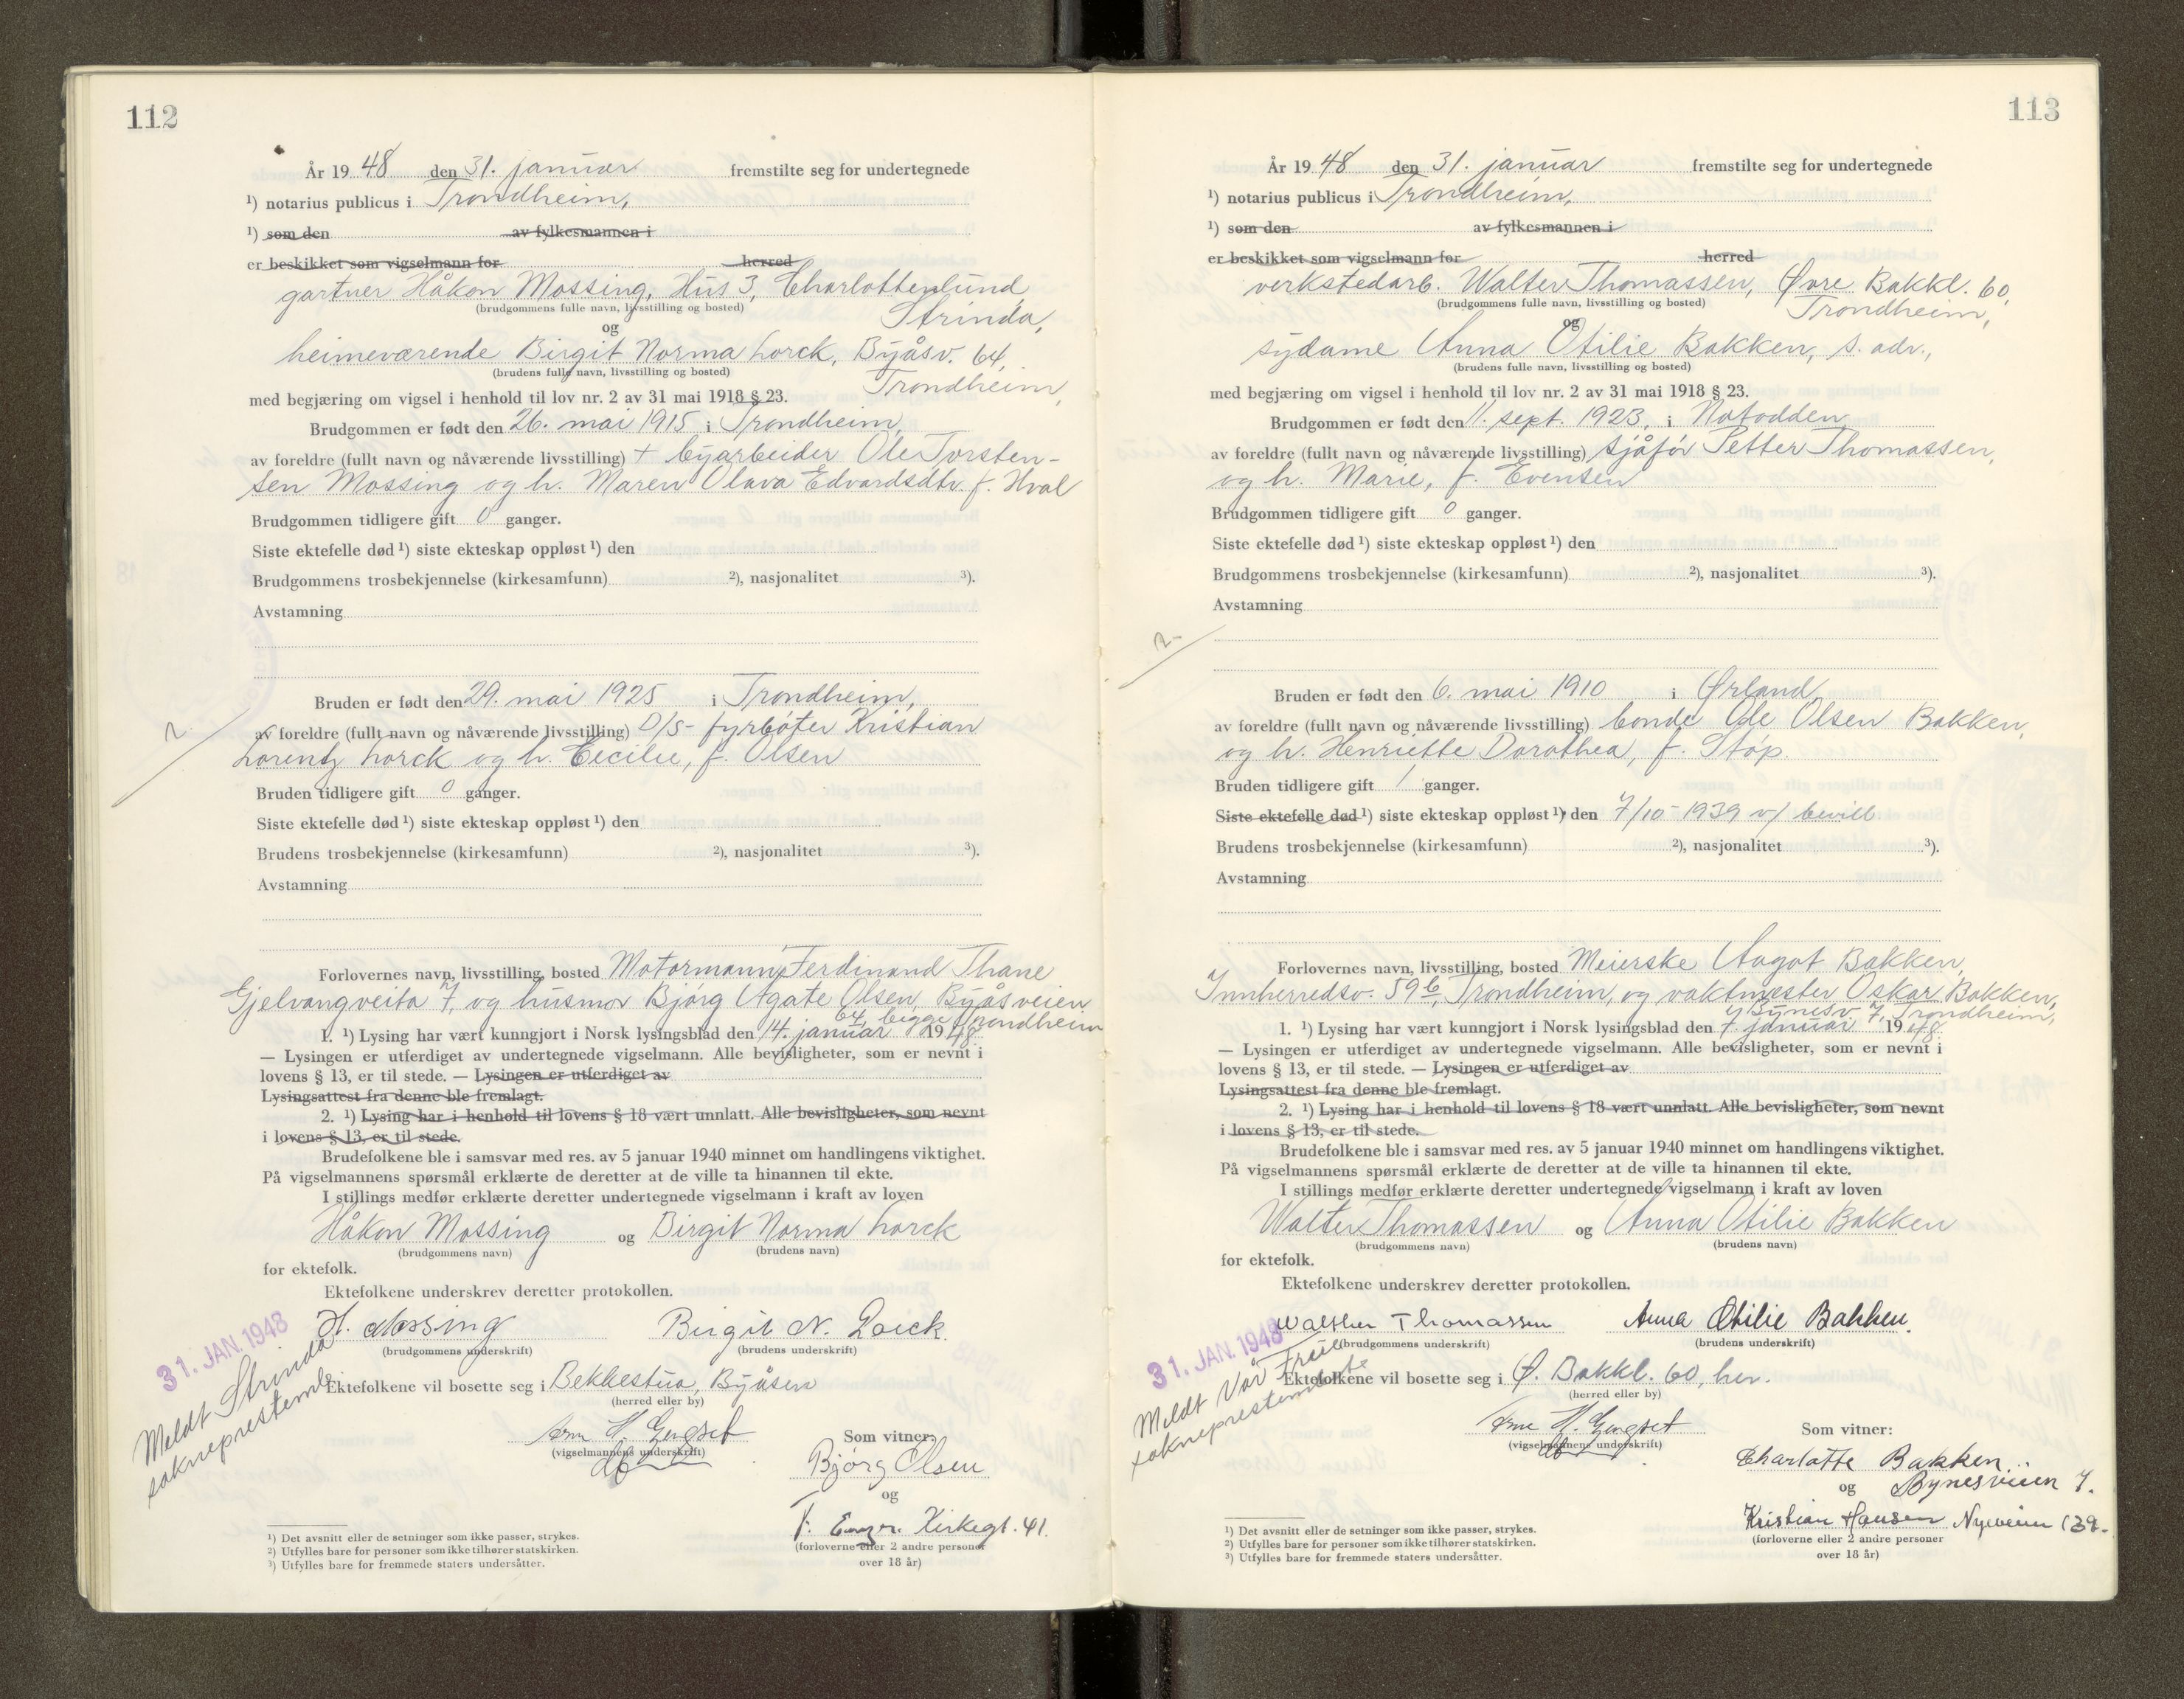 112
År 1948 den 31. januar fremstilte seg for undertegnede
1) notarius publicus i Trondheim,
1) som den av fylkesmannen i
er beskikket som vigselmann for herred
gartner Håkon Mossing, Hus 3, Charlottenlund,
(brudgommens fulle navn, livsstilling og bosted)
Strinda,
og
heimeværende Birgit Norma Lorck, Byåsv. 64,
(brudens fulle navn, livsstilling og bosted)
Trondheim,
med begjæring om vigsel i henhold til lov nr. 2 av 31 mai 1918 § 23.
Brudgommen er født den 26. mai 1915 i Trondheim,
av foreldre (fullt navn og nåværende livsstilling) + byarbeider Ole Torsten-
sen Mossing og h. Maren Olava Edvardsdtr. f. Hval
Brudgommen tidligere gift 0 ganger.
Siste ektefelle død 1) siste ekteskap oppløst 1) den
Brudgommens trosbekjennelse (kirkesamfunn) 2), nasjonalitet 3).
Avstamning
Bruden er født den 29. mai 1925 i Trondheim,
av foreldre (fullt navn og nåværende livsstilling) D/S- fyrbøter Kristian
Lorentz Lorck og h. Cecilie, f. Olsen
2
Bruden tidligere gift 0 ganger.
Siste ektefelle død 1) siste ekteskap oppløst 1) den
Brudens trosbekjennelse (kirkesamfunn) 2), nasjonalitet 3).
Avstamning
Forlovernes navn, livsstilling, bosted Motormann Ferdinand Thane
Gjelvangveita 7, og husmor Bjørg Agate Olsen, Byåsveien
64, begge Trondheim
1. 1) Lysing har vært kunngjort i Norsk lysingsblad den 14. januar 1948
— Lysingen er utferdiget av undertegnede vigselmann. Alle bevisligheter, som er nevnt i
lovens § 13, er til stede. — Lysingen er utferdiget av
Lysingsattest fra denne ble fremlagt.
2. 1) Lysing har i henhold til lovens § 18 vært unnlatt. Alle bevisligheter, som nevnt
i lovens § 13, er til stede.
Brudefolkene ble i samsvar med res. av 5 januar 1940 minnet om handlingens viktighet.
På vigselmannens spørsmål erklærte de deretter at de ville ta hinannen til ekte.
I stillings medfør erklærte deretter undertegnede vigselmann i kraft av loven
Håkon Mossing og Birgit Norma Lorck
(brudgommens navn) (brudens navn)
for ektefolk.
Ektefolkene underskrev deretter protokollen.
H. Mossing Birgit N. Lorck.
(brudgommens underskrift) (brudens underskrift)
31. JAN. 1948
Meldt Strinda
sokneprestemb.
Ektefolkene vil bosette seg i Bekkestua, Byåsen
(herred eller by)
(vigselmannens underskrift)
Som vitner:
Bjørg Olsen
og
Kirkegt. 41.
(forloverne eller 2 andre personer
over 18 år)
1) Det avsnitt eller de setninger som ikke passer, strykes.
2) Utfylles bare for personer som ikke tilhører statskirken.
3) Utfylles bare for fremmede staters undersåtter.
113
År 1948 den 31. januar fremstilte seg for undertegnede
1) notarius publicus i Trondheim,
1) som den av fylkesmannen i
er beskikket som vigselmann for herred
verkstedarb. Walter Thomassen, Øvre Bakkl. 60,
(brudgommens fulle navn, livsstilling og bosted)
Trondheim,
og
sydame Anna Otilie Bakken, s. adr.,
(brudens fulle navn, livsstilling og bosted)
med begjæring om vigsel i henhold til lov nr. 2 av 31 mai 1918 § 23.
Brudgommen er født den 11. sept. 1923, i Notodden
av foreldre (fullt navn og nåværende livsstilling) sjåfør Petter Thomassen,
og h. Marie, f. Evensen
Brudgommen tidligere gift 0 ganger.
Siste ektefelle død 1) siste ekteskap oppløst 1) den
Brudgommens trosbekjennelse (kirkesamfunn) 2), nasjonalitet 3).
Avstamning
2
Bruden er født den 6. mai 1910 i Ørland,
av foreldre (fullt navn og nåværende livsstilling) bonde Ole Olsen Bakken,
og h. Henriette Dorothea, f. Støp.
Bruden tidligere gift 1 ganger.
Siste ektefelle død 1) siste ekteskap oppløst 1) den 7/10 - 1939 v/ bevill.
Brudens trosbekjennelse (kirkesamfunn) 2), nasjonalitet 3).
Avstamning
Forlovernes navn, livsstilling, bosted Meierske Aagot Bakken,
Innherredsv. 59b, Trondheim, og vaktmester Oskar Bakken,
Bynesv. 7, Trondheim,
1. 1) Lysing har vært kunngjort i Norsk lysingsblad den 7. januar 1948.
— Lysingen er utferdiget av undertegnede vigselmann. Alle bevisligheter, som er nevnt i
lovens § 13, er til stede. — Lysingen er utferdiget av
Lysingsattest fra denne ble fremlagt.
2. 1) Lysing har i henhold til lovens § 18 vært unnlatt. Alle bevisligheter, som nevnt
i lovens § 13, er til stede.
Brudefolkene ble i samsvar med res. av 5 januar 1940 minnet om handlingens viktighet.
På vigselmannens spørsmål erklærte de deretter at de ville ta hinannen til ekte.
I stillings medfør erklærte deretter undertegnede vigselmann i kraft av loven
Walter Thomassen og Anna Otilie Bakken
(brudgommens navn) (brudens navn)
for ektefolk.
Ektefolkene underskrev deretter protokollen.
Walther Thomassen Anna Otilie Bakken.
(brudgommens underskrift) (brudens underskrift)
31. JAN. 1948
Meldt Vår Frue
sokneprestembete
Ektefolkene vil bosette seg i Ø. Bakkl. 60, her.
(herred eller by)
(vigselmannens underskrift)
Som vitner:
Charlotte Bakken
og Bynesveien 7.
Kristian Hansen Nyveien
(forloverne eller 2 andre personer
over 18 år)
1) Det avsnitt eller de setninger som ikke passer, strykes.
2) Utfylles bare for personer som ikke tilhører statskirken.
3) Utfylles bare for fremmede staters undersåtter.